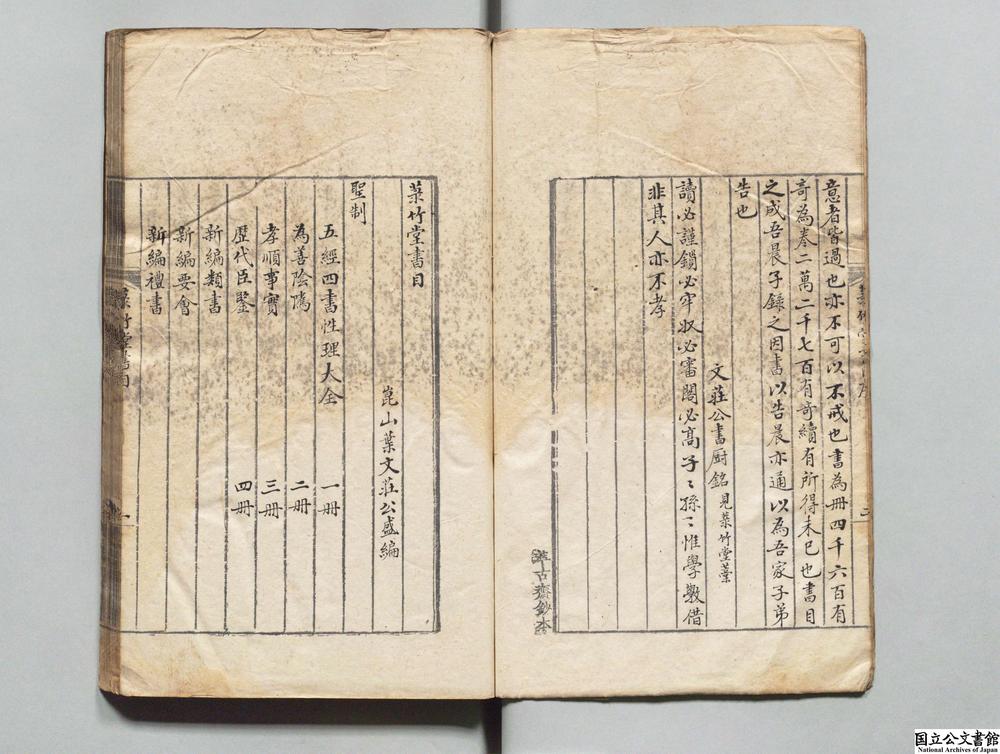 意者皆過也亦不可以不戒也書為冊四千六百有
奇為卷二萬二千七百有奇續有所得未已也書目
之成吾晨子錄之因書以告晨亦通以為吾家子弟
告也
文莊公書厨銘見菉竹堂藁
讀必謹鎖必牢收必審閣必高子〻孫〻惟學斅借
非其人亦不孝
古齋鈔本
菉竹堂書目
崑山葉文莊公盛編
聖制
五經四書性理大全 一冊
為善陰隲 二冊
孝順事實 三冊
歴代臣鑒 四冊
新編類書
新編要會
新編禮書
菉竹堂書目
一
国立公文書館
National Archives of Japan